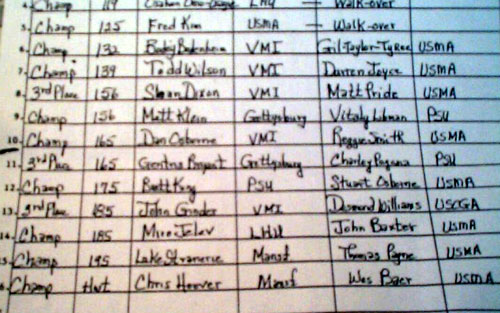 Champ 119 LHU — Walk-over
5. Champ 125 Fred Kim USMA — Walk-over
6. Champ 132 VMI Gil Taylor-Tyree USMA
7. Champ 139 Todd Wilson VMI Darren Joyce USMA
8. 3rd Place 156 Sloan Dixon VMI Matt Pride USMA
9. Champ 156 Matt Klein Gettysburg Vitaly PSU
10. Champ 165 Dan Osborne VMI Reggie Smith USMA
11. 3rd Place 165 Bryant Gettysburg Charley PSU
12. Champ 175 Brett King PSU Stuart Osborne USMA
13. 3rd Place 185 John Grinder VMI Desmond Williams USCGA
14. Champ 185 Miro Jelev LHU John Baxter USMA
15. Champ 195 Luke Mansf Thomas Payne USMA
Champ Hwt Chris Hoover Mansf Wes Baer USMA